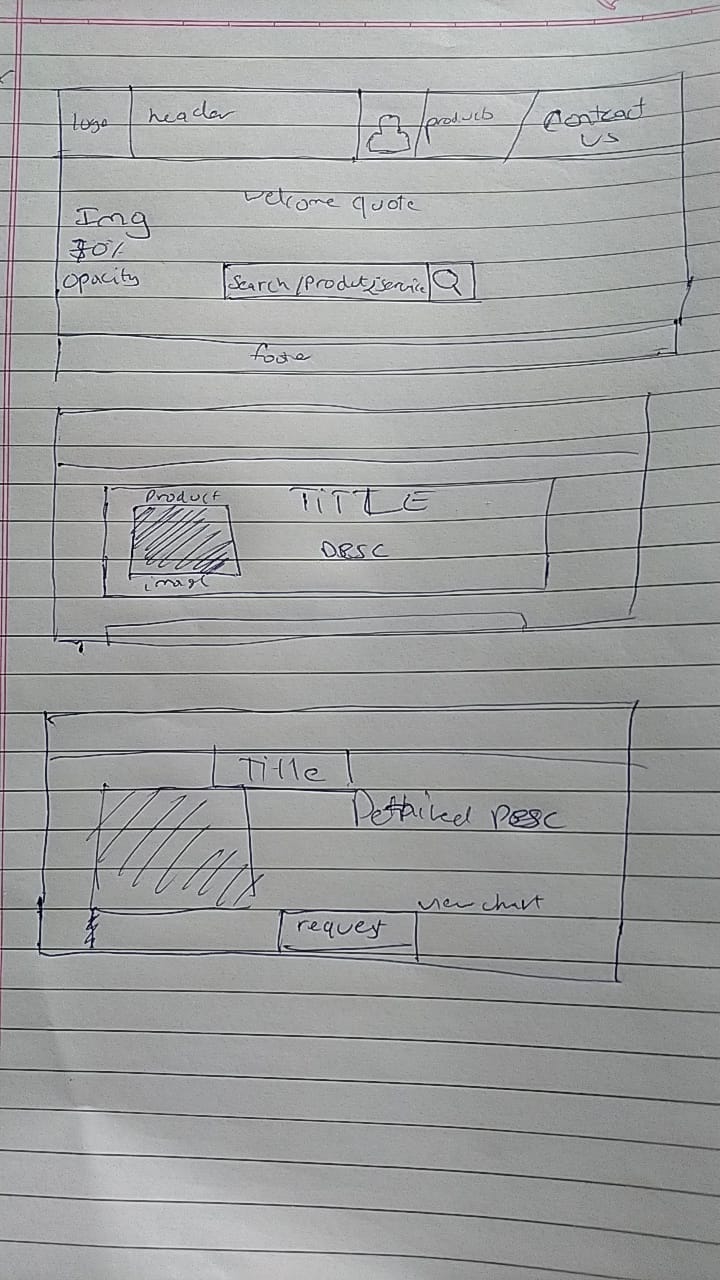 logo
header
products
Contract
us
welcome quote
Img
30%
opacity
Search/Product,service
foote
Product
TITLE
DESC
image
Title
Dethived Desc
view chart
request